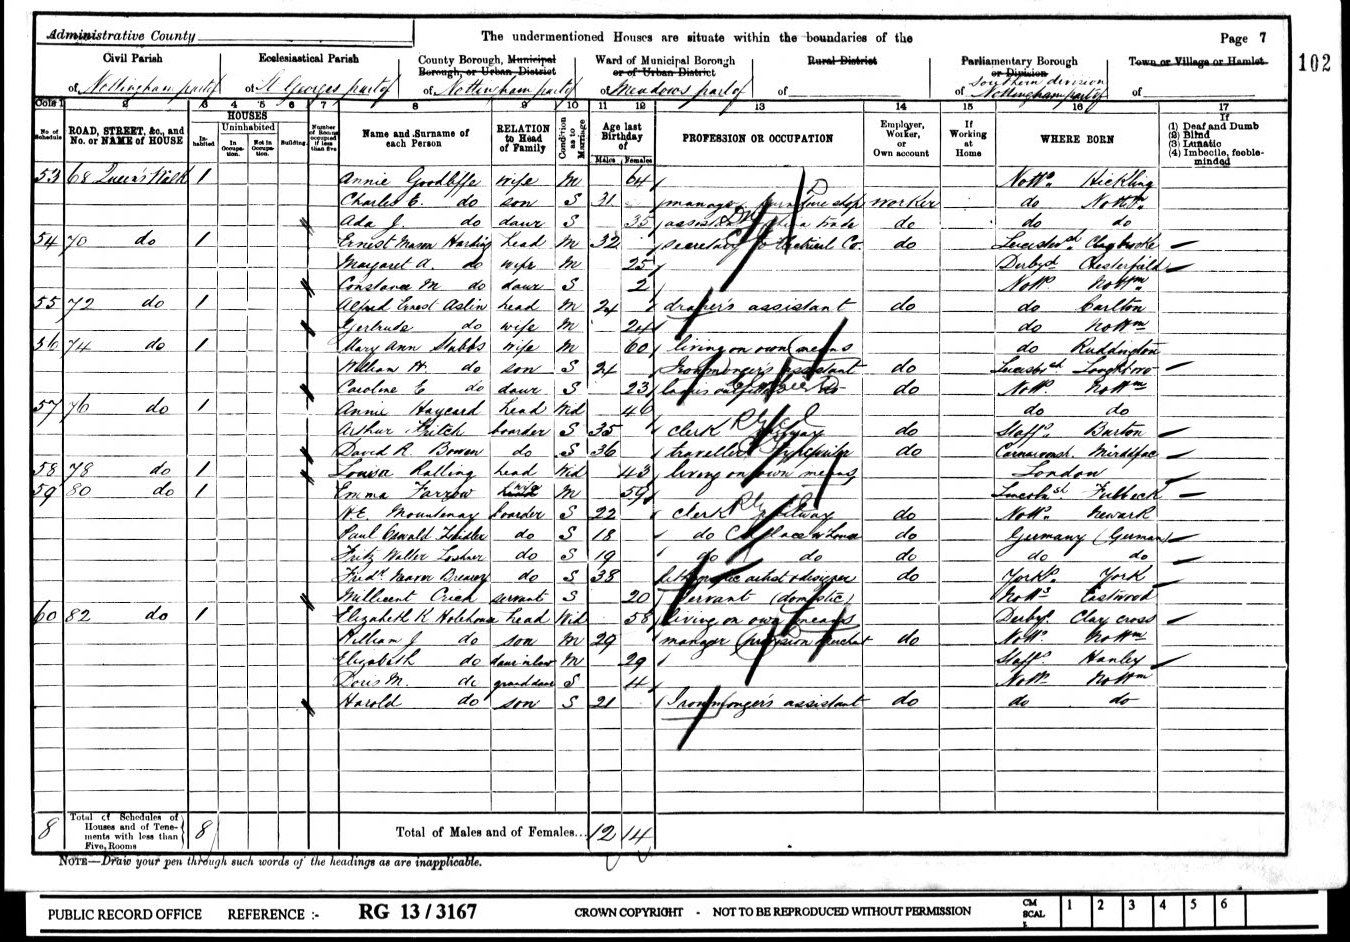 Administrative County
The undermentioned Houses are situate within the boundaries of the
Page 7
102
Civil Parish
of Nottingham part of
Ecclesiastical Parish
of St Georges part of
County Borough, Municipal
Borough, or Urban District
of Nottingham part of
Ward of Municipal Borough
or of Urban District
of Meadows part of
Rural District
of
Parliamentary Borough
or Division
Southern division
of Nottingham part of
Town or Village or Hamlet
of
Cols 1 2 3 4 5 6 7 8 9 10 11 12 13 14 15 16 17
No of Schedule
ROAD, STREET, &c., and No. or NAME of HOUSE
HOUSES
Inhabited
Uninhabited
In Occupation.
Not in Occupation.
Building.
Number of Rooms occupied if less than five
Name and Surname of each Person
RELATION to Head of Family
Condition as to Marriage
Age last Birthday of
Males Females
PROFESSION OR OCCUPATION
Employer, Worker, or Own account
If Working at Home
WHERE BORN
If
(1) Deaf and Dumb
(2) Blind
(3) Lunatic
(4) Imbecile, feeble-minded
53 68 Queen's Walk 1 Annie Goodliffe wife M 64 Notts. Hickling
Charles E. do son S 31 manager furniture shop worker do Nottm
Ada J. do daur S 35 assistant trade do do do
54 70 do 1 Ernest Mason Harding head M 32 secretary to Co. do Leicestersh. Claybrooke
Margaret A. do wife M 25 Derbysh Chesterfield
Constance M do daur S 2 Notts Nottm
55 72 do 1 Alfred Ernest Aslin head M 24 draper's assistant do do Carlton
Gertrude do wife M 24 do Nottm
56 74 do 1 Mary Ann Stubbs wife M 60 living on own means do Ruddington
William H. do son S 24 Ironmonger's assistant do Leicestersh Loughboro
Caroline E do daur S 23 ladies outfitters do do Notts. Nottm
57 76 do 1 Annie Haycard head Wid 46 do do
Arthur Fritch boarder S 35 clerk railway do Staffs. Burton
David R. Bowen do S 36 traveller do
58 78 do 1 Louisa Ratling head Wid 43 living on own means London
59 80 do 1 Emma Farrow wife M 59 Lincolnsh Fulbeck
W.E. Mountenay boarder S 22 clerk railway do Notts. Newark
Paul Oswald do S 18 do lace warehouse do Germany (German)
Fritz Walter Loshner do S 19 do do do do do
Fredk Mavor Brearey do S 38 lithographic artist & designer do Yorks. York
Millicent Crich servant S 20 Servant (domestic) Notts Eastwood
60 82 do 1 Elizabeth K Holehouse head Wid 58 living on own means Derbys. Clay cross
William J. do son M 29 manager provision merchant do Notts. Nottm
Elizabeth do daur in law M 29 Staffs. Hanley
Doris M. do granddaur S 4 Notts Nottm
Harold do son S 21 Ironmonger's assistant do do do
8 Total of Schedules of Houses and of Tenements with less than Five Rooms 8 Total of Males and of Females... 12 14
NOTE—Draw your pen through such words of the headings as are inapplicable.
PUBLIC RECORD OFFICE REFERENCE :- RG 13 / 3167 CROWN COPYRIGHT - NOT TO BE REPRODUCED WITHOUT PERMISSION CM SCALE 1 2 3 4 5 6